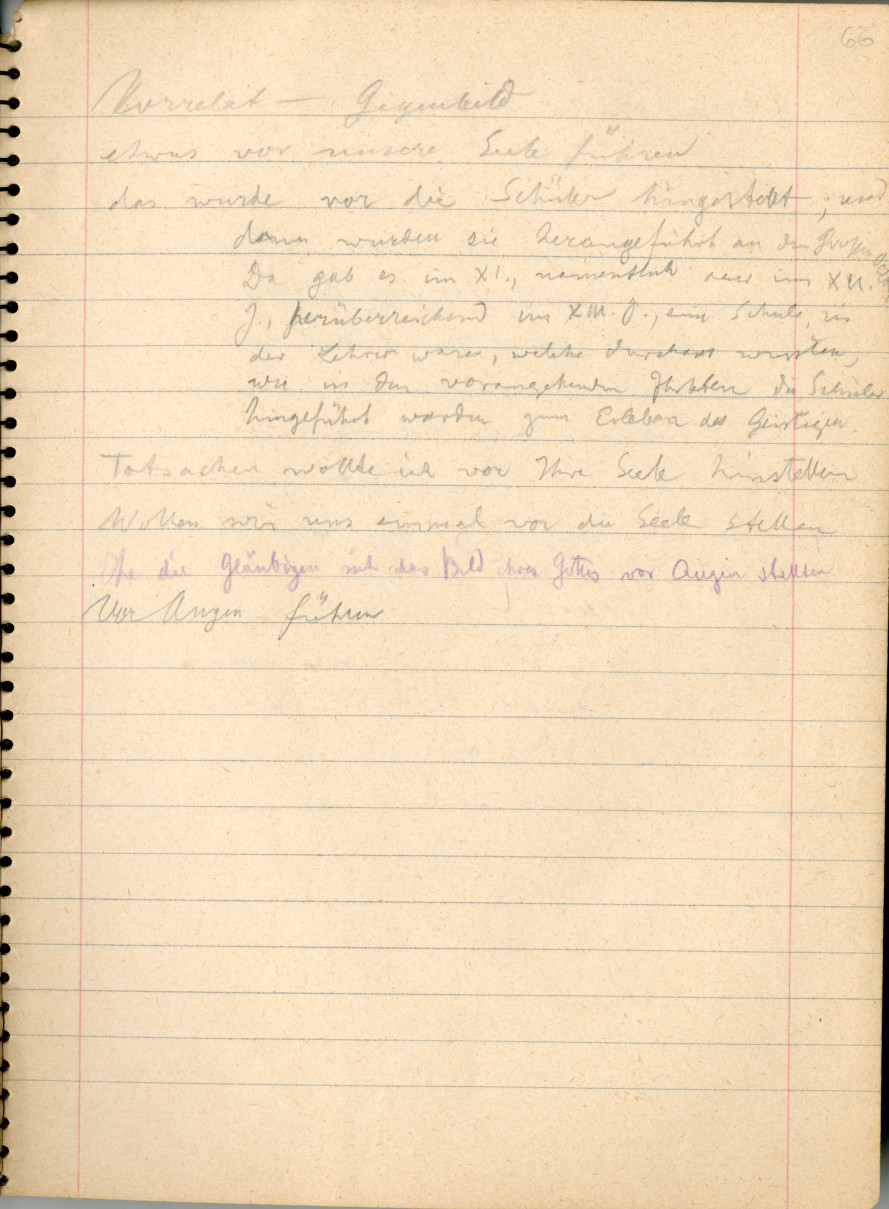 66
Korrelat — Gegenbild
etwas vor unsere Seele führen
das wurde vor die Schüler hingestellt; und
dann wurden sie herangeführt an den Großen
Da gab es im XI., namentlich aber im XII.
J., herüberreichend ins XIII. J., eine Schule, in
der Lehrer waren, welche durchaus wussten,
wie in den vorangehenden die Schüler
hingeführt worden zum Erleben des Geistigen.
Tatsachen wollte ich vor Ihre Seele hinstellen
Wollen wir uns einmal vor die Seele stellen
Ehe die Gläubigen sich das Bild ihres Gottes vor Augen stellten
Vor Augen führen